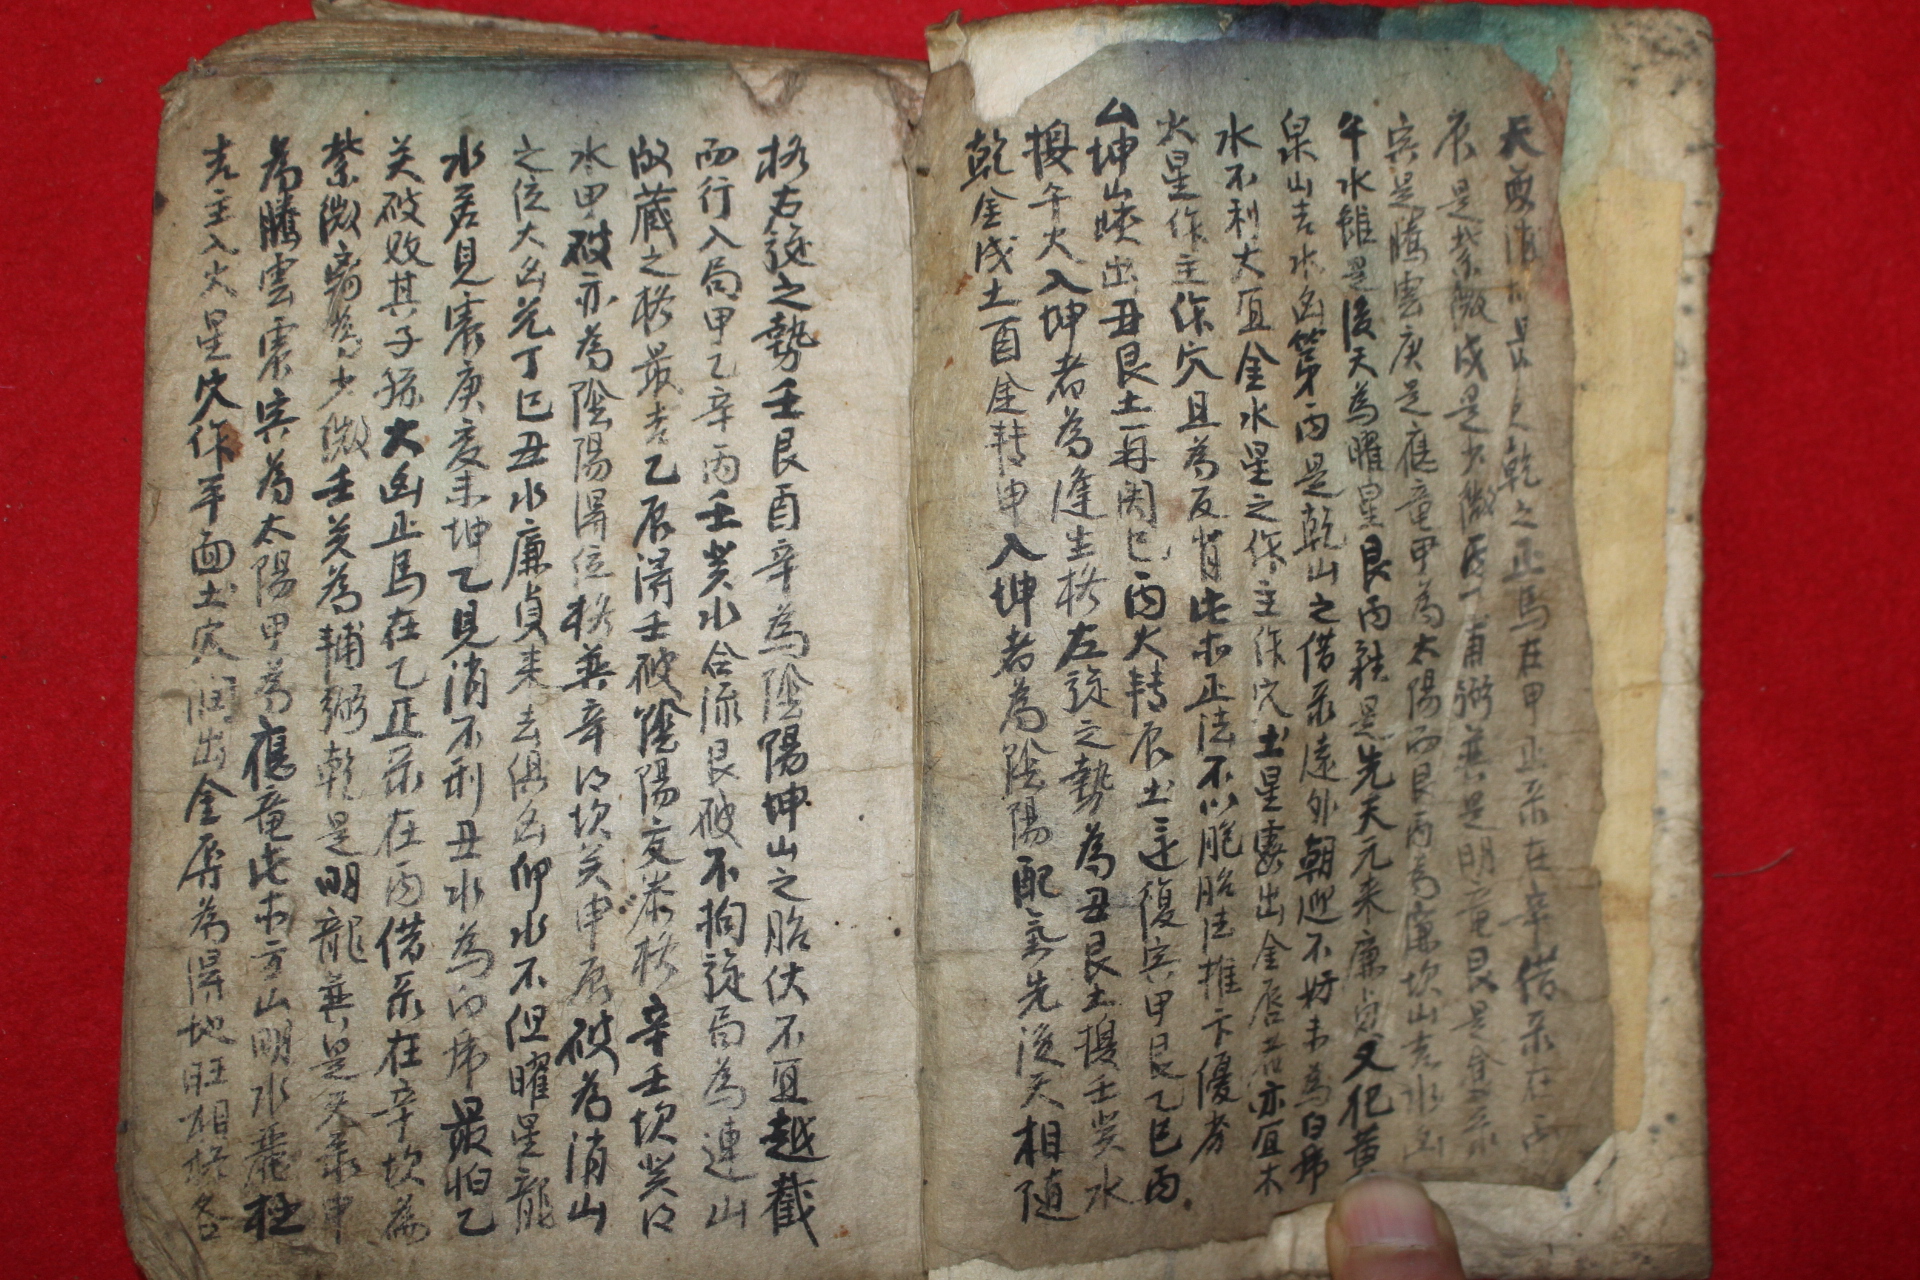 天尊消 是 乾之正馬在甲正彔在辛借彔在丙
辰是紫微戌是少微 丁輔弼巽是明竜艮是 彔
寅是騰雲庚是應竜甲為太陽而艮丙為廉坎山吉水凶
午水雖是後天為曜星艮丙雖是先天元来廉貞又犯黃
泉山吉水凶第丙是乾山之借彔遠外朝迎不妨未為白㡌
水不利大宜金水星之作主作穴土星囊出金唇吉亦宜木
火星作主作穴且為反背此亦正法不以胞胎法推卞優劣
厶坤山峽出丑艮土再閃巳丙火轉辰土 復寅甲艮乙巳丙
換午火入坤者為逢生格左旋之勢為丑艮土換壬癸水
乾金戌土酉金轉申入坤者為陰陽配 先後天相随
格右旋之勢壬艮酉辛為陰陽坤山之胎伏不宜越截
而行入局甲乙辛丙壬癸水合流艮破不拘旋局為連山
㱕藏之格最吉乙辰得壬破陰陽交泰格辛壬坎癸得
水甲破亦為陰陽得位格巽辛得坎癸申辰破為消山
之位大凶艽丁巳丑水廉貞来去俱凶卯水不但曜星龍
水若見寅庚亥未坤乙見消不利丑水為白㡌最怕乙
癸破敗其子孫大凶正馬在乙正彔在丙借彔在辛坎為
紫微 為少微壬癸為輔弼乾是明龍巽是天彔申
為騰雲震寅為太陽甲為應竜此本方山明水麗極
吉主入火星穴作平面土穴 出金唇為得地旺相格各